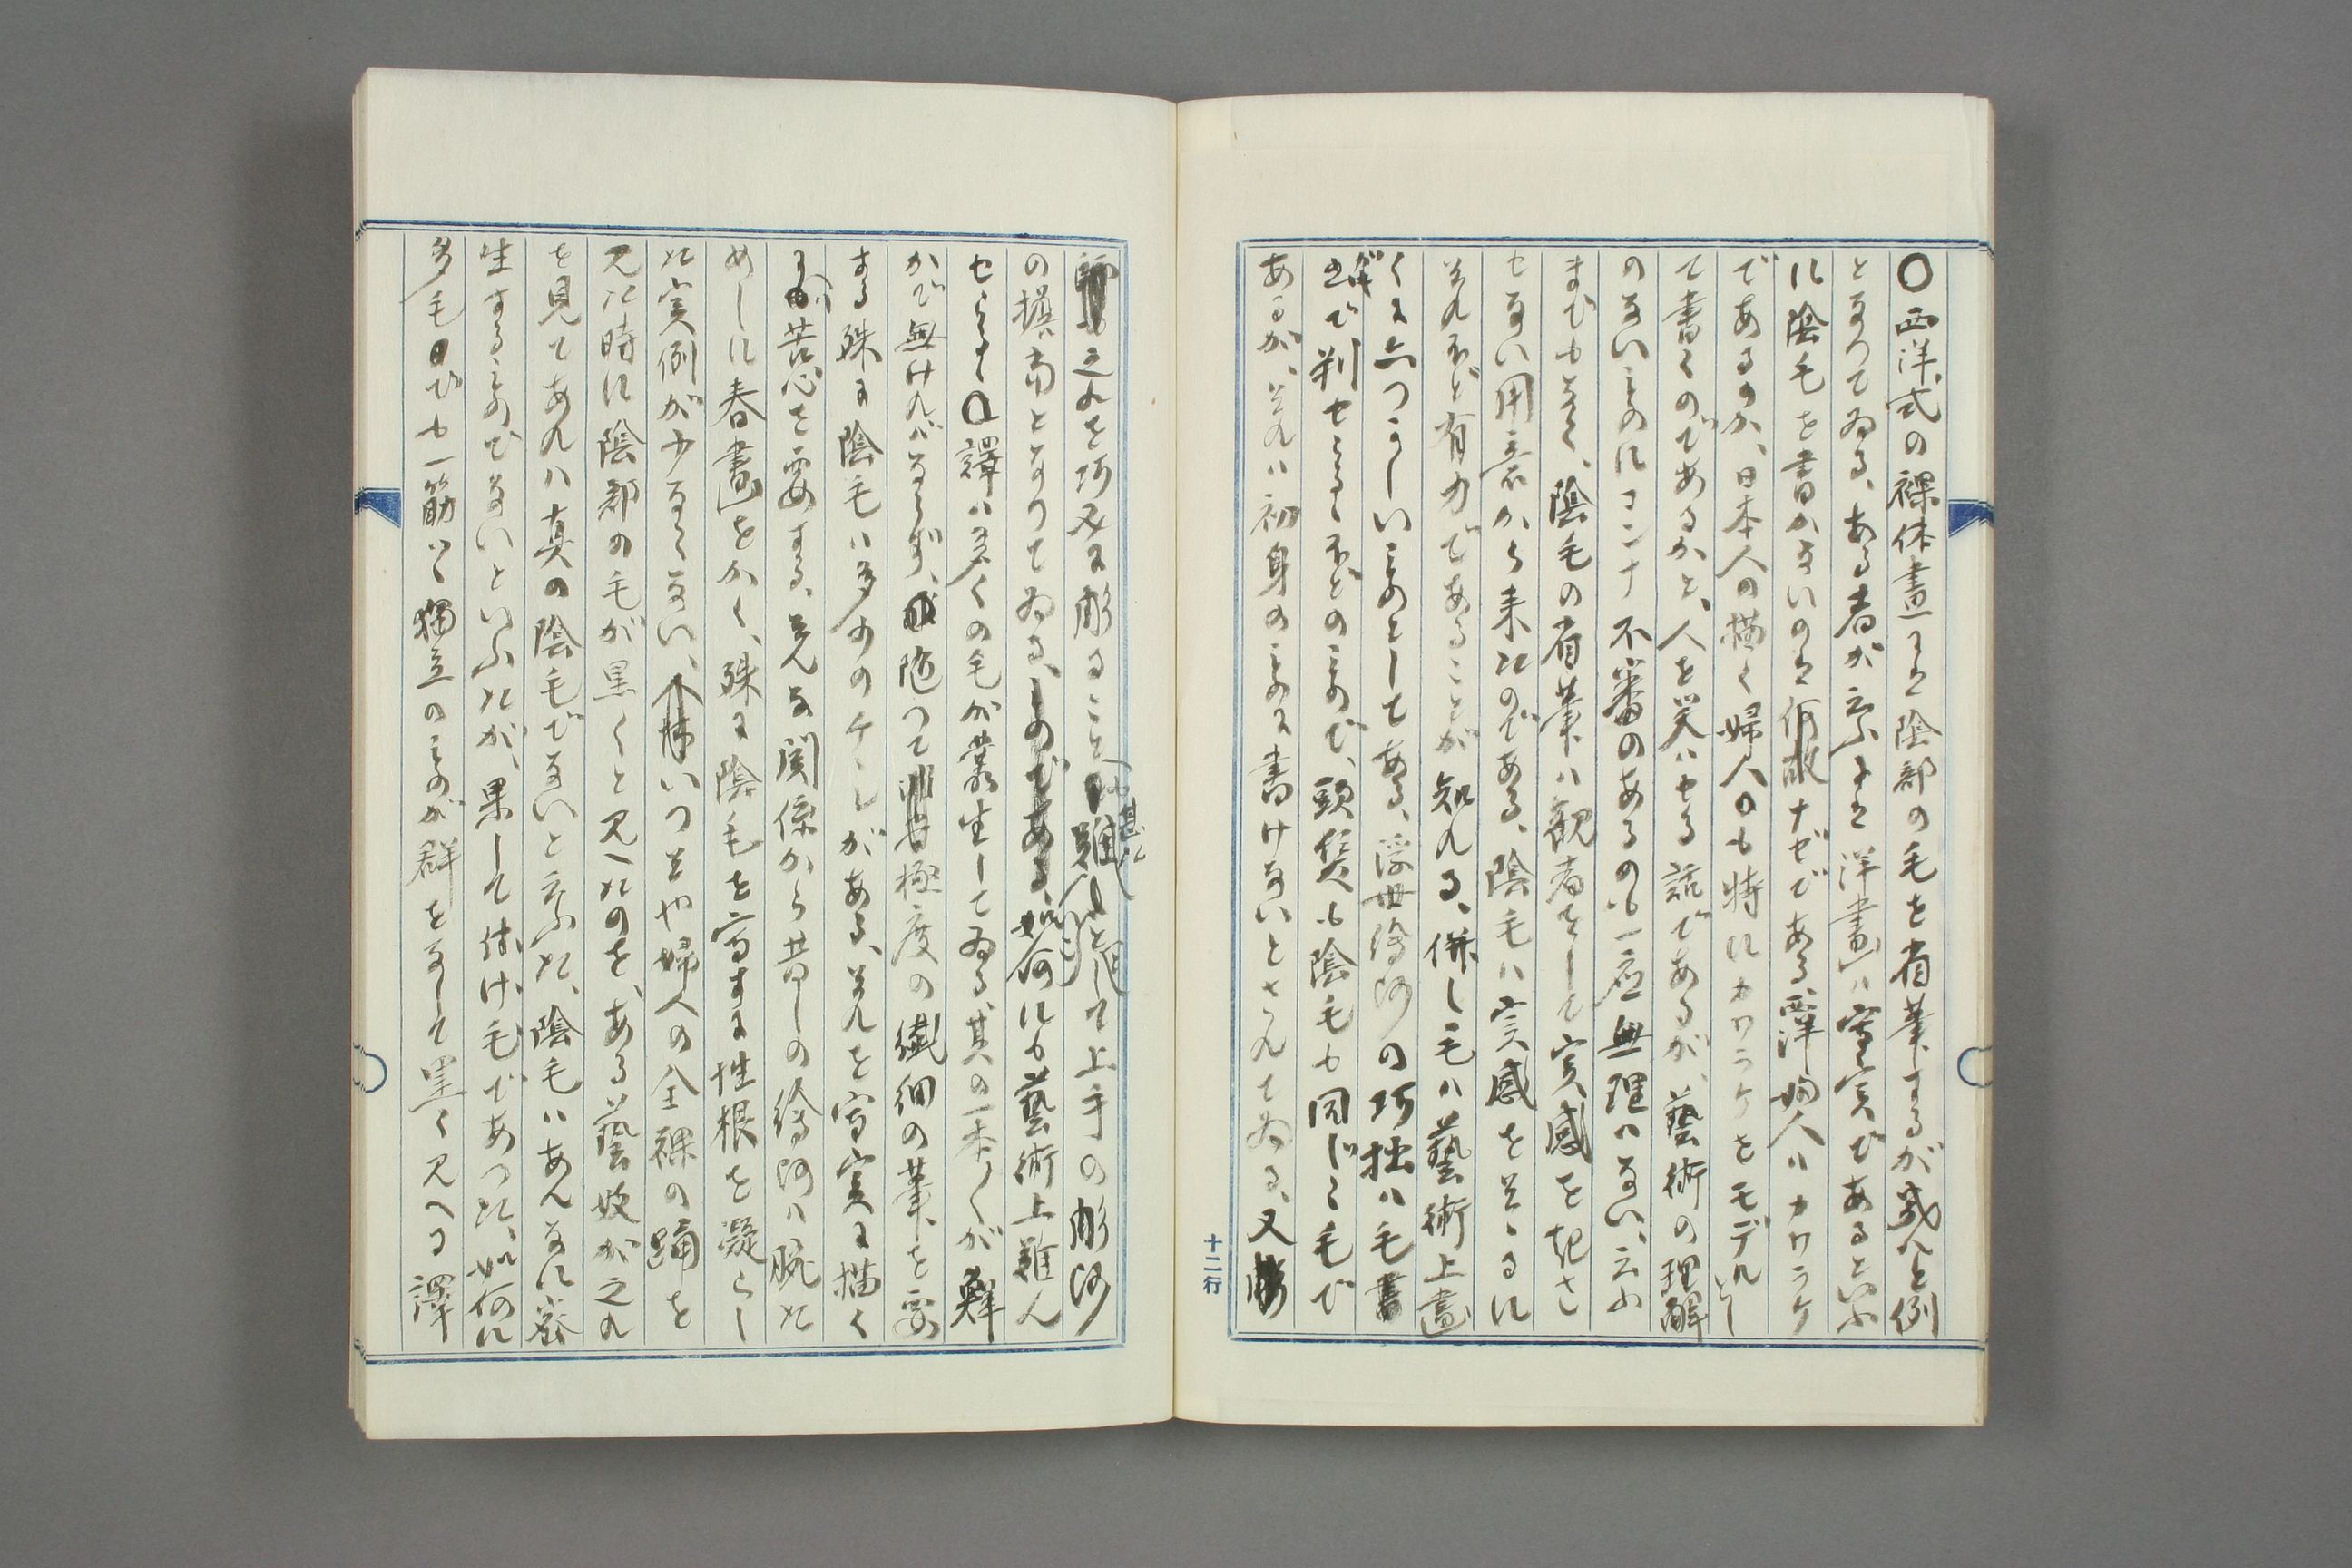 〇西洋式の裸体畫には陰部の毛を省筆するが感八と例
となつてゐる、ある者が云ふには洋畫ハ写実であるといふ
に陰毛を書かないのは何故ナゼである、西洋婦人ハカワラケ
であるのか、日本人の描く婦人も特にカワラケをモデルにし
て書くのであるかと、人を笑ハせる話であるが、藝術の理解
のないものにコンナ不審のあるのハ一応無理ハない、云ふ
までもなく、陰毛の省筆ハ観者をして実感を起さ
せない用意から来たのである、陰毛ハ実感をそゝるに
それほど有力であることが知れる、併し毛ハ藝術上畫
くにむつかしいものとしてある、浮世絵師の巧拙ハ毛書
きで判せらるゝほどのもので、頭髪も陰毛も同じく毛で
あるが、それハ初身のものに書けないとされてゐる、又
之れを巧みに彫ること甚た難しとして上手の彫師
の擅場となつてゐる、如何にも藝術上難ん
せらるゝ譯ハ多くの毛が叢生してゐる其の一本々々が鮮
かで無ければならず、随つて極度の繊細の筆を要
する殊に陰毛ハ多少のチヾレがある、それを写実に描く
に苦心を要する、そんな関係から昔しの絵師ハ腕た
めしに春畫をかく、殊に陰毛を写すに性根を凝らし
た実例が少なくない、いつぞや婦人の全裸の踊を
見た時に陰部の毛が黒くと見へたのを、ある藝妓が之れ
を見てあれハ真の陰毛でないと云ふた、陰毛ハあんなに密
生するものでないといふたが、果して附け毛であつた、如何に
多毛でも一筋づゝ獨立のものが群をなして黒く見へる譯
十二行